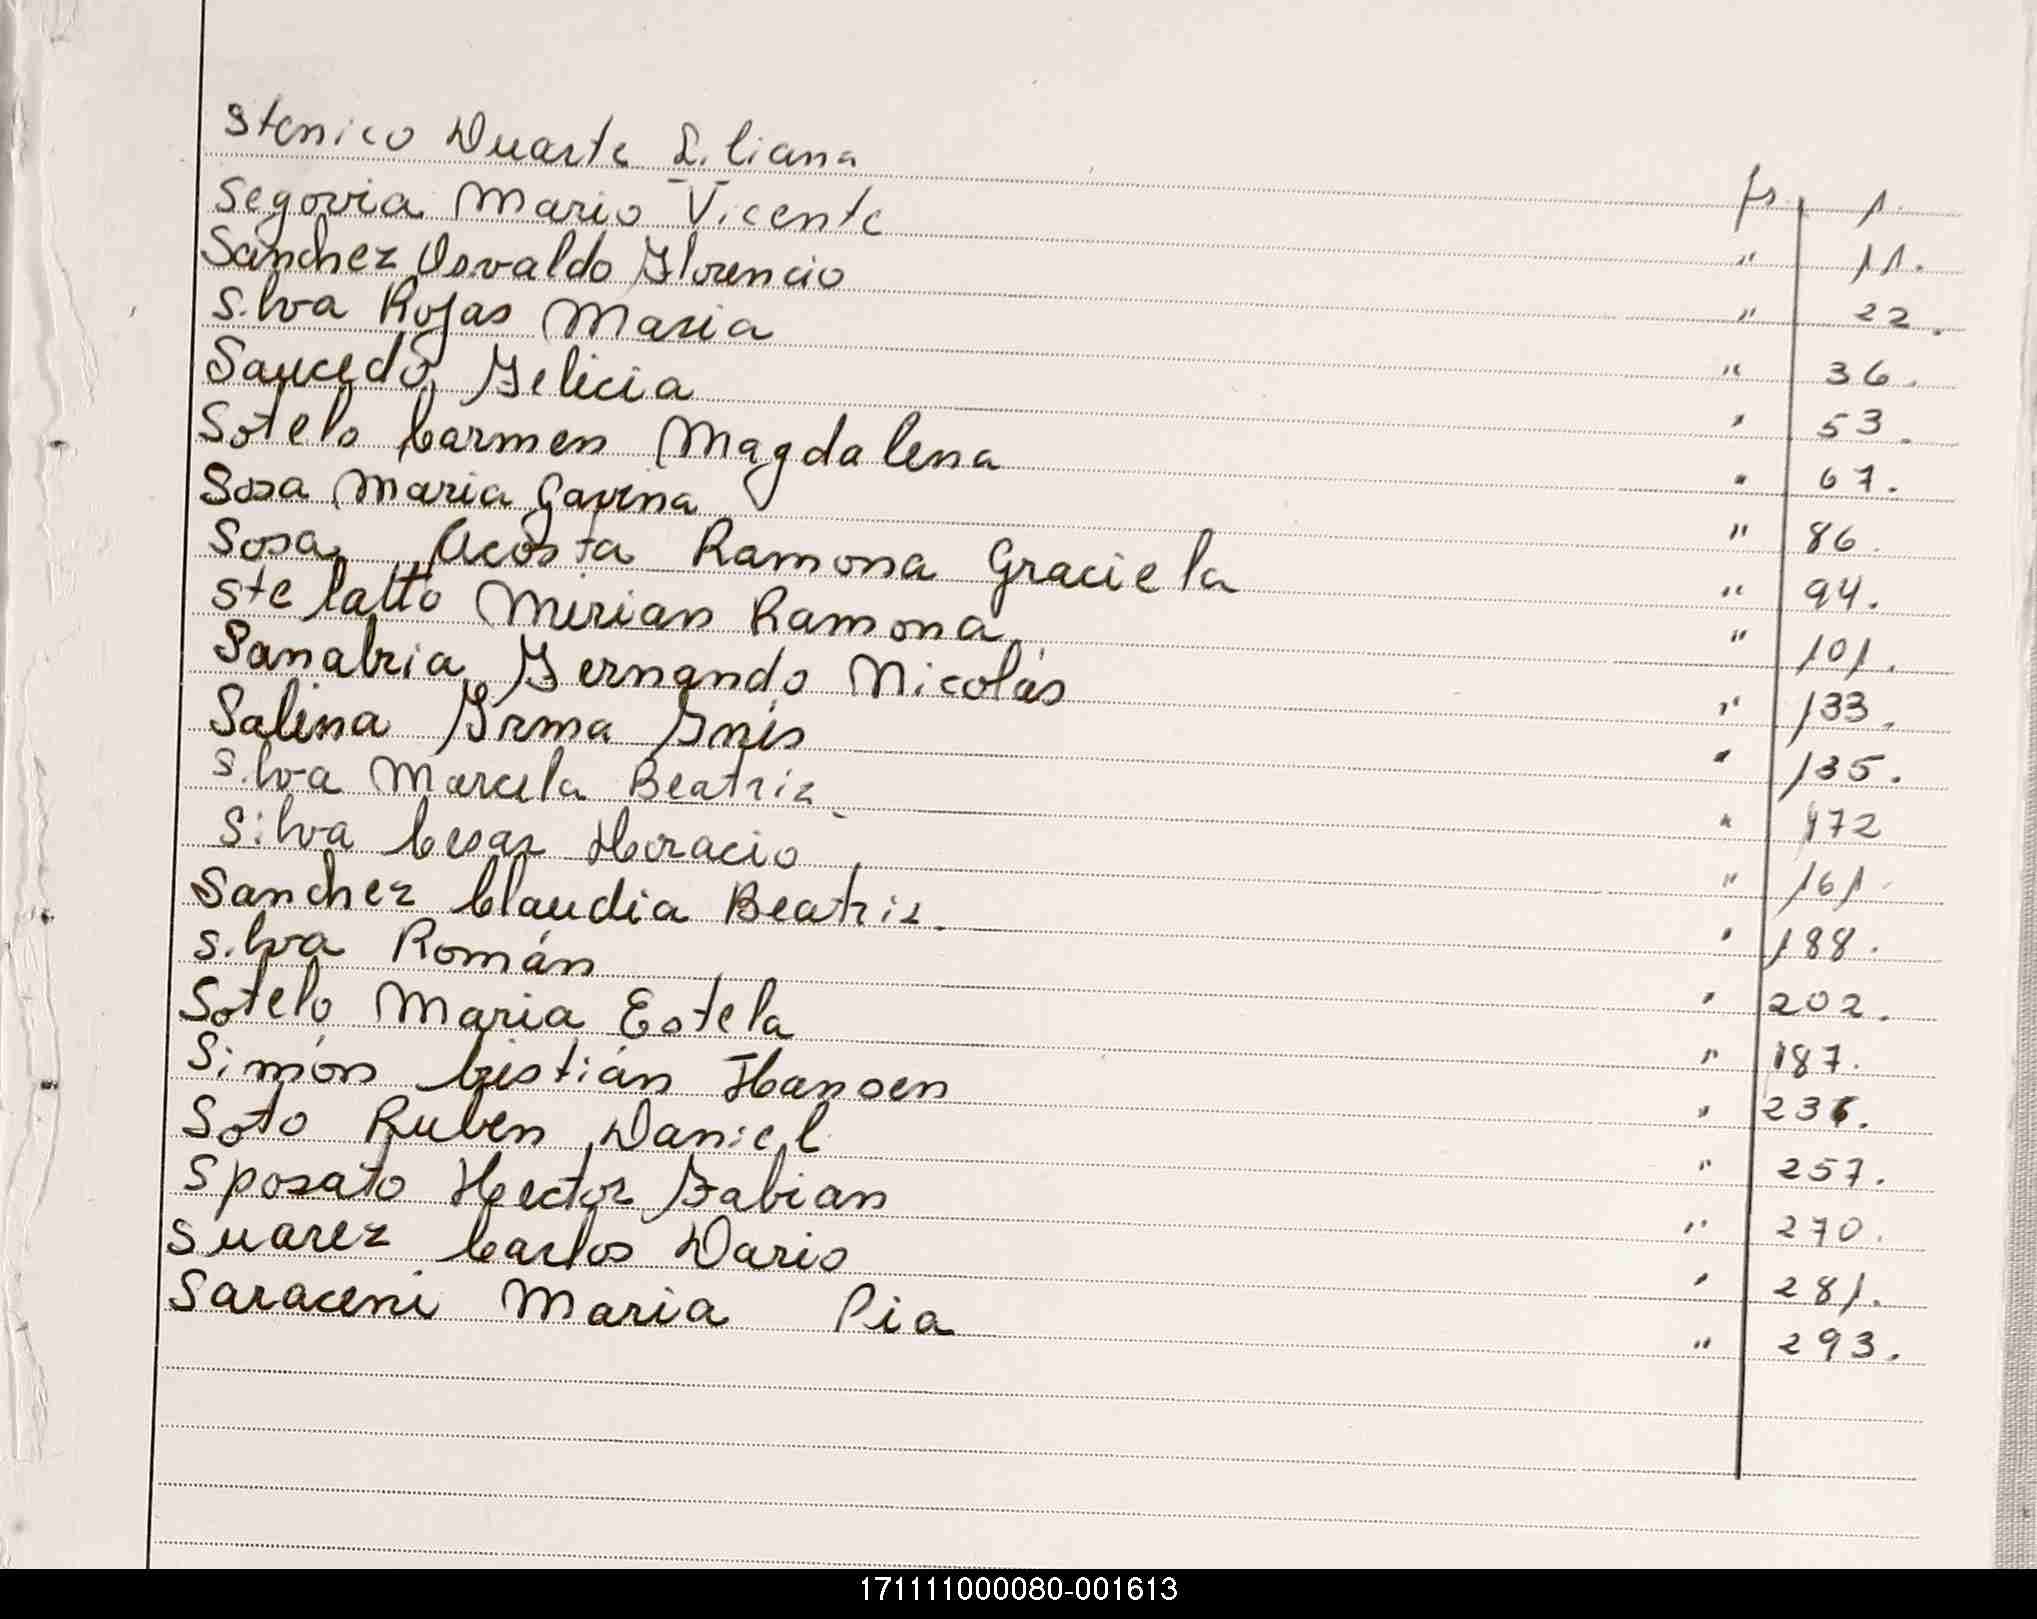 Stenico Duarte Liliana fs. 1.
Segovia Mario Vicente " 11.
Sanchez Osvaldo Florencio " 22.
Silva Rojas Maria " 36.
Saucedo, Felicia " 53.
Sotelo Carmen Magdalena " 67.
Sosa Maria Gavina " 86.
Sosa Acosta Ramona Graciela " 94.
Stelatto Mirian Ramona " 101.
Sanabria Fernando Nicolás " 133.
Salina Irma Inés " 135.
Silva Marcela Beatriz " 172
Silva Cesar Horacio " 161.
Sanchez Claudia Beatriz " 188.
Silva Román " 202.
Sotelo Maria Estela " 187.
Simón Cristián Hansen " 236.
Soto Ruben Daniel " 257.
Sposato Hector Fabian " 270.
Suarez Carlos Dario " 281.
Saraceni Maria Pia " 293.
171111000080-001613